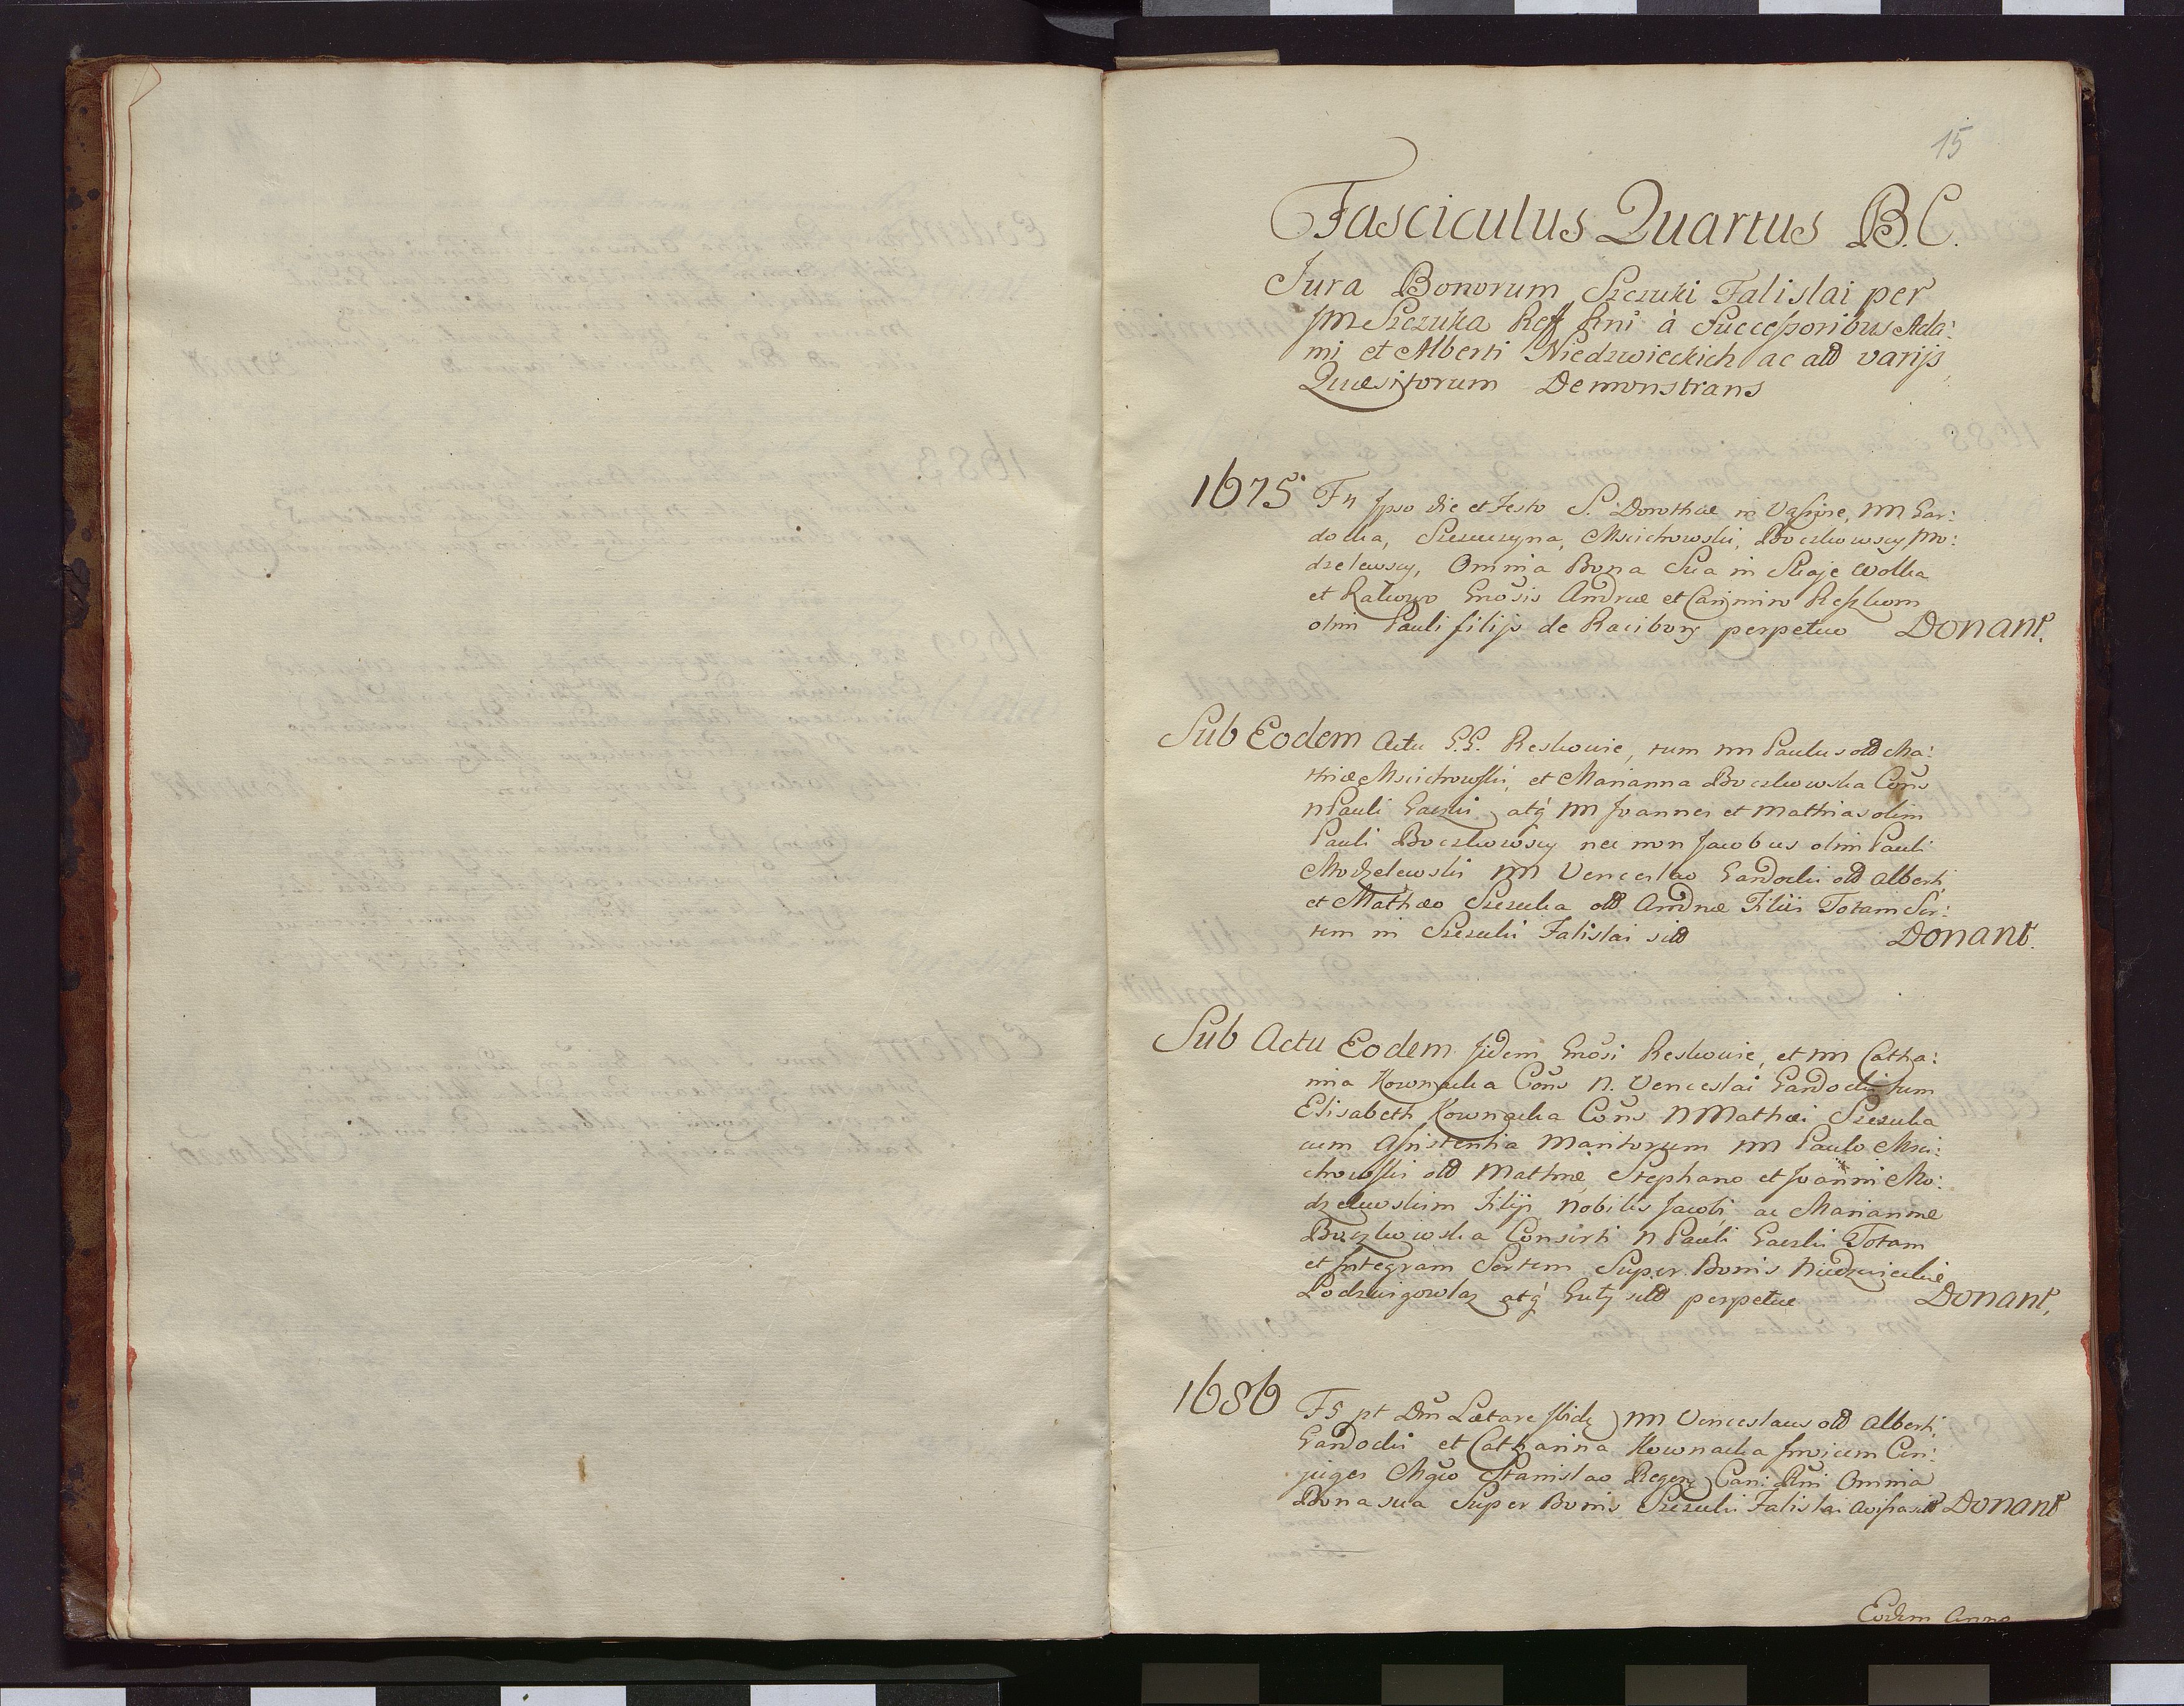 15
Fasciculus Quartus B.C.
Jura Bonorum Szczuki Falislai per
JM Szczuka Reff Rni à Successoribus Ada:
mi et Alberti Niedzwieckich ac ald varijs
Quæsitorum Demonstrans
1675 F4 Ipso die et Festo S. Dorothæ in Wąsosze, NN Gar:
docka, Szczuczyna, Mscichowski, Boczkowscy, Mo:
dzelewscy, Omnia Bona Sua in Skaje Wolka
et Rakowo Gnõsis Andreæ et Casimiro Reszkom
olim Pauli filijs de Racibory perpetuo Donant.
Sub Eodem Actu G.G. Reskowie, tum NN Paulus old Ma:
thiæ Mscichowski, et Marianna Boczkowska Cons
N Pauli Gaczki atq̃ NN Joannes et Mathias olim
Pauli Boczkowscy nec non Jacobus olim Pauli
Modzelewski NN Venceslao Gardocki old Alberti,
et Mathæo Szczuka old Andreæ Filiis Totam Sor:
tem in Szczuki Falislai sitt Donant.
Sub Actu Eodem Jidem Gnõsi Reskowie, et NN Catha:
rina Kownacka Cons N. Venceslai Gardocki tum
Elisabeth Kownacka Cons N Mathæi Szczuka
cum Assistentia Maritorum NN Paulo Msci:
chowski old Mathiæ, Stephano et Joanni Mo:
dzelewskim Filijs Nobilis Jacobi ac Mariannæ
Boczkowska Consorti N Pauli Gaczki Totam
et Integram Sortem Super Bonis Niedzwieckie
Lodzwigowlaz atq̃ Guty sitt perpetue Donant,
1686 F5 pt Dm̃ Lætare Ibidẽ NN Venceslaus old Alberti,
Gardocki et Catharina Kownacka Invicem Con:
juges Mgco Stanislao Regen. Can: Rni Omnia
Bona sua Super Bonis Szczuki Falislai Donant
Eodem Anno